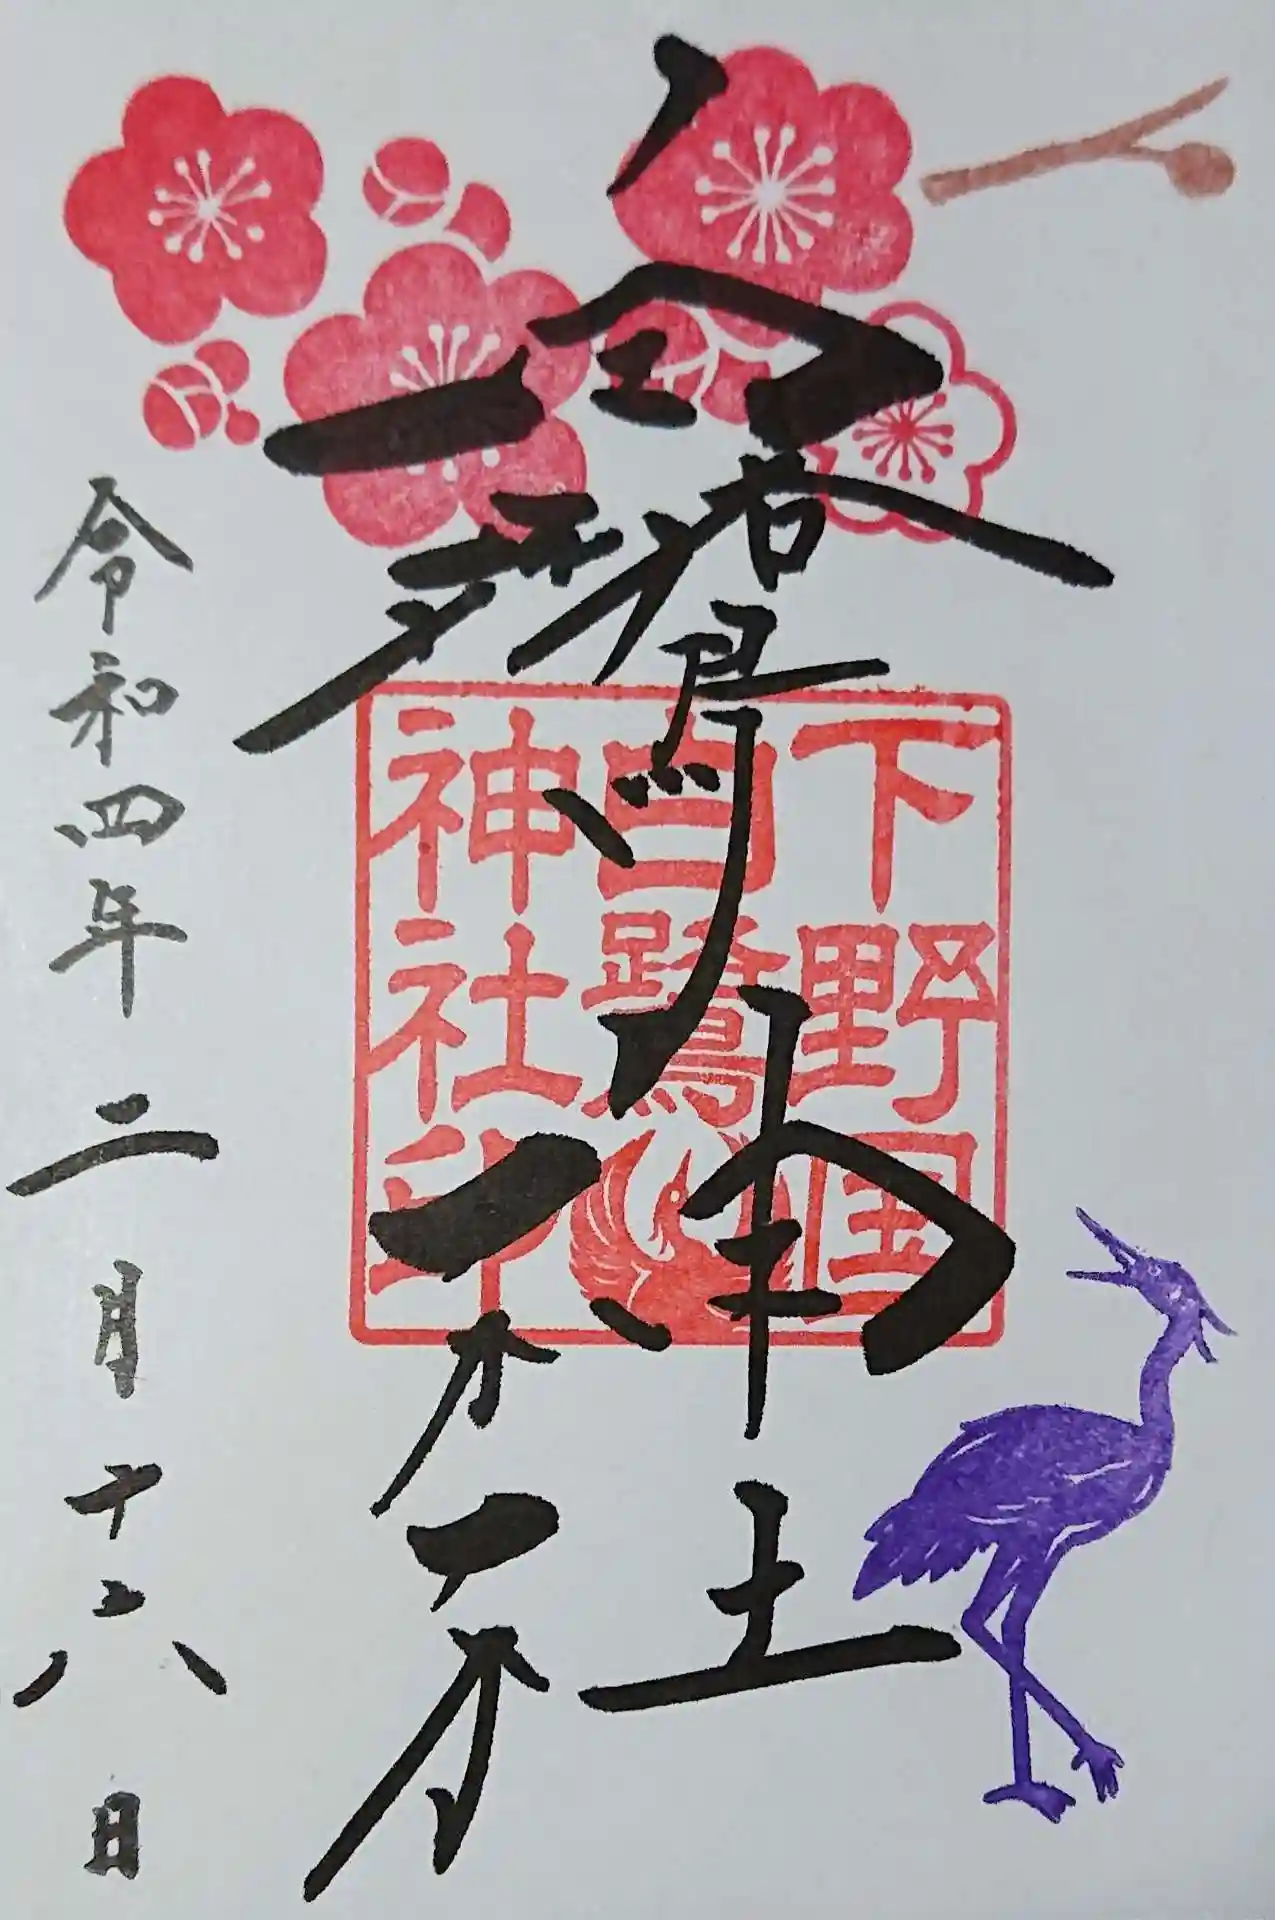 白鷺神社
下野国
白鷺
神社印
令和四年 二月十八日